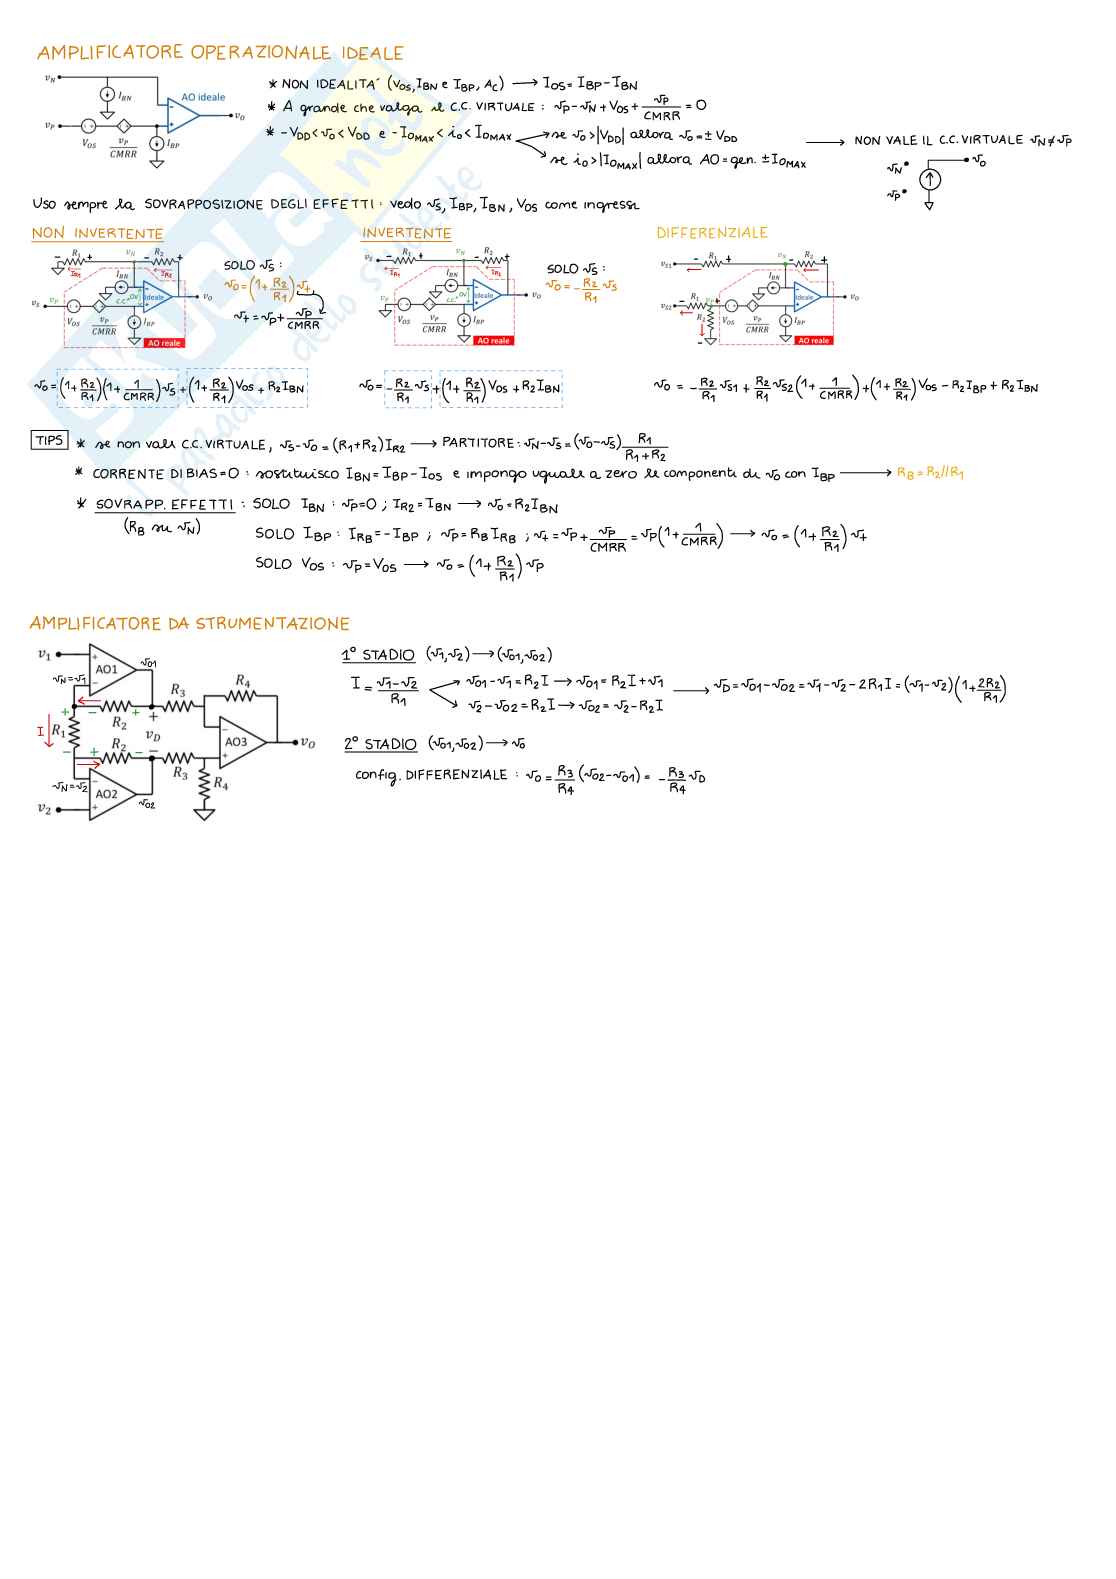 AMPLIFICATORE OPERAZIONALE IDEALE
v_N
I_BN
AO ideale
v_P
v_O
V_OS
v_P/CMRR
I_BP
* NON IDEALITA' (V_OS, I_BN e I_BP, A_C) → I_OS = I_BP - I_BN
* A grande che valga il C.C. VIRTUALE : v_P - v_N + V_OS + v_P/CMRR = 0
* -V_DD < v_O < V_DD e -I_OMAX < i_O < I_OMAX
se v_O > |V_DD| allora v_O = ± V_DD
se i_O > |I_OMAX| allora AO = gen. ± I_OMAX
→ NON VALE IL C.C. VIRTUALE v_N ≠ v_P
v_N
v_O
v_P
Uso sempre la SOVRAPPOSIZIONE DEGLI EFFETTI : vedo v_S, I_BP, I_BN, V_OS come ingressi
NON INVERTENTE
- R_1 + v_N - R_2 +
I_R1 I_R2
I_BN
v_S v_P C.C. 0V Ideale v_O
V_OS v_P/CMRR I_BP
AO reale
SOLO v_S :
v_O = (1 + R_2/R_1) v_+
v_+ = v_P + v_P/CMRR
v_O = (1 + R_2/R_1)(1 + 1/CMRR) v_S + (1 + R_2/R_1) V_OS + R_2 I_BN
INVERTENTE
v_S - R_1 + v_N - R_2 +
I_R1 I_R2
I_BN
v_P C.C. 0V Ideale v_O
V_OS v_P/CMRR I_BP
AO reale
SOLO v_S :
v_O = - R_2/R_1 v_S
v_O = - R_2/R_1 v_S + (1 + R_2/R_1) V_OS + R_2 I_BN
DIFFERENZIALE
v_S1 - R_1 + v_N - R_2 +
I_BN
v_S2 - R_1 v_P + Ideale v_O
R_2 V_OS v_P/CMRR I_BP
AO reale
v_O = - R_2/R_1 v_S1 + R_2/R_1 v_S2 (1 + 1/CMRR) + (1 + R_2/R_1) V_OS - R_2 I_BP + R_2 I_BN
TIPS
* se non vale C.C. VIRTUALE, v_S - v_O = (R_1 + R_2) I_R2 → PARTITORE : v_N - v_S = (v_O - v_S) R_1/(R_1 + R_2)
* CORRENTE DI BIAS = 0 : sostituisco I_BN = I_BP - I_OS e impongo uguale a zero le componenti di v_O con I_BP → R_B = R_2 // R_1
* SOVRAPP. EFFETTI : SOLO I_BN : v_P = 0 ; I_R2 = I_BN → v_O = R_2 I_BN
(R_B su v_N)
SOLO I_BP : I_RB = - I_BP ; v_P = R_B I_RB ; v_+ = v_P + v_P/CMRR = v_P (1 + 1/CMRR) → v_O = (1 + R_2/R_1) v_+
SOLO V_OS : v_P = V_OS → v_O = (1 + R_2/R_1) v_P
AMPLIFICATORE DA STRUMENTAZIONE
v_1
AO1
v_O1
v_N = v_1
R_3
R_4
I
R_1
R_2
v_D
AO3
v_O
R_2
R_3
R_4
v_N = v_2
AO2
v_O2
v_2
1° STADIO (v_1, v_2) → (v_O1, v_O2)
I = (v_1 - v_2)/R_1
v_O1 - v_1 = R_2 I → v_O1 = R_2 I + v_1
v_2 - v_O2 = R_2 I → v_O2 = v_2 - R_2 I
→ v_D = v_O1 - v_O2 = v_1 - v_2 - 2R_1 I = (v_1 - v_2)(1 + 2R_2/R_1)
2° STADIO (v_O1, v_O2) → v_O
config. DIFFERENZIALE : v_O = R_3/R_4 (v_O2 - v_O1) = - R_3/R_4 v_D